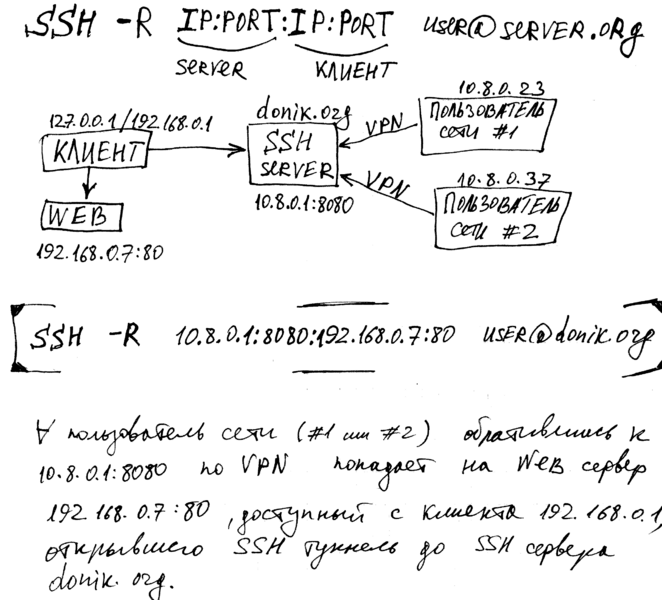 SSH -R IP:PORT:IP:PORT USER@SERVER.ORG
SERVER КЛИЕНТ
127.0.0.1/192.168.0.1
КЛИЕНТ
WEB
192.168.0.7:80
donik.org
SSH
SERVER
10.8.0.1:8080
VPN
VPN
10.8.0.23
ПОЛЬЗОВАТЕЛЬ
СЕТИ #1
10.8.0.37
ПОЛЬЗОВАТЕЛЬ
СЕТИ #2
SSH -R 10.8.0.1:8080:192.168.0.7:80 USER@donik.org
∀ пользователь сети (#1 или #2) обратившись к
10.8.0.1:8080 по VPN попадает на WEB сервер
192.168.0.7:80, доступный с клиента 192.168.0.1,
открывшего SSH туннель до SSH сервера
donik.org.